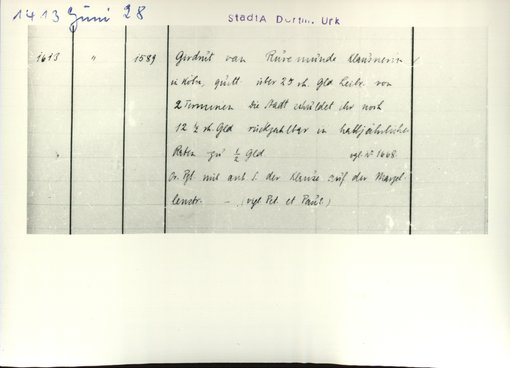 1413 Juni 28
StadtA Dortm. Urk
1613 " 1589 Gerdrut van Rüremunde Klausnerin
in Köln, quitt. über 25 rh. Gld Leibr. von
2 Terminen die Stadt schuldet ihr noch
12 ½ rh. Gld rückzahlbar in halbjährliche
Raten zu ½ Gld vgl. N° 1668
Or. Pgt. mit anh. S. der Klause auf der Marzel-
lenstr. – (vgl Pet. et Paul.)